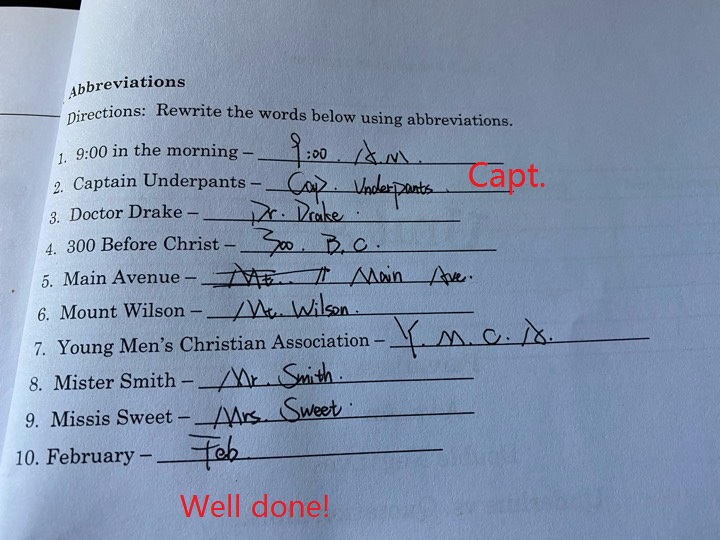 Abbreviations
Directions: Rewrite the words below using abbreviations.
1. 9:00 in the morning – 9:00. A.M.
2. Captain Underpants – Cap. Underpants. Capt.
3. Doctor Drake – Dr. Drake.
4. 300 Before Christ – 300. B.C.
5. Main Avenue – Main Ave.
6. Mount Wilson – Mt. Wilson.
7. Young Men's Christian Association – Y.M.C.A.
8. Mister Smith – Mr. Smith.
9. Missis Sweet – Mrs. Sweet.
10. February – Feb.
Well done!